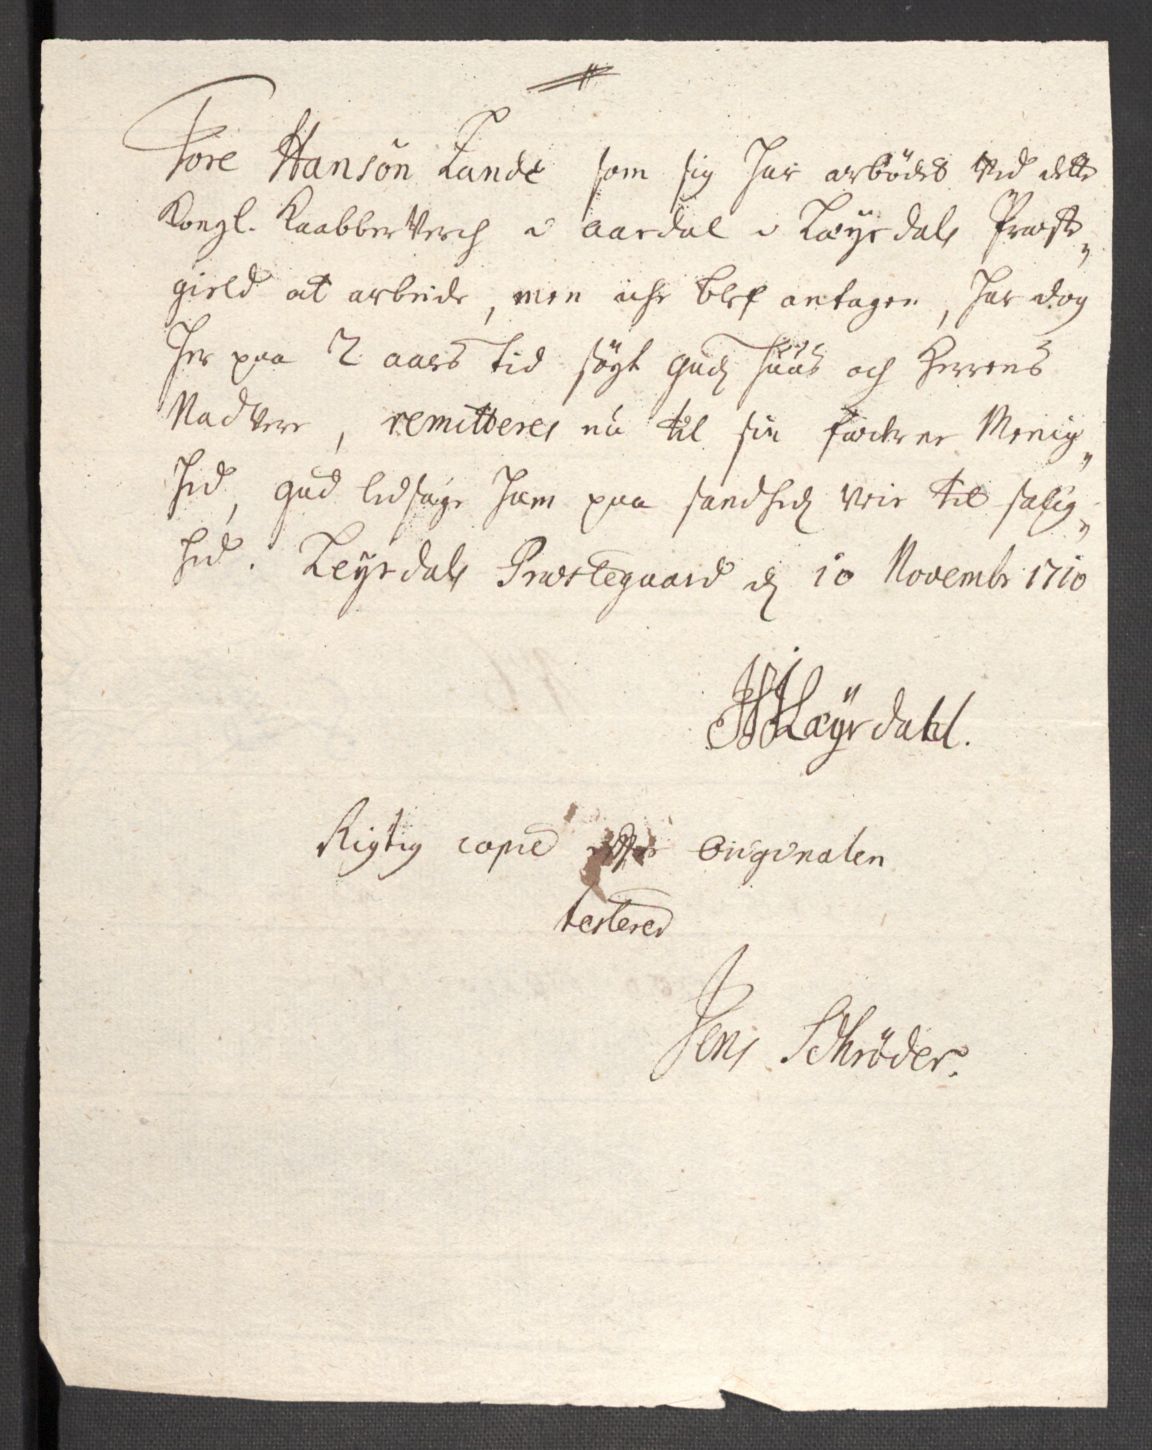 Tore Hansön Lande som sig har arbödet ved dette
Kongl. Kaabberverch i Aardal i Läyrdals Præste„
gield at arbeide, men iche blef antagen, har dog
her paa 2 aars tid søgt Guds huus och Herrens
Nadvere, remitteres nu til sin forderne Menig„
hed, Gud ledsage ham paa sandheds vei til salig„
hed. Leÿrdals Præstegaard d 10 Novembr 1710
Läyrdahl.
Rigtig copie efter Originalen
testerer
Jens Schrøder.